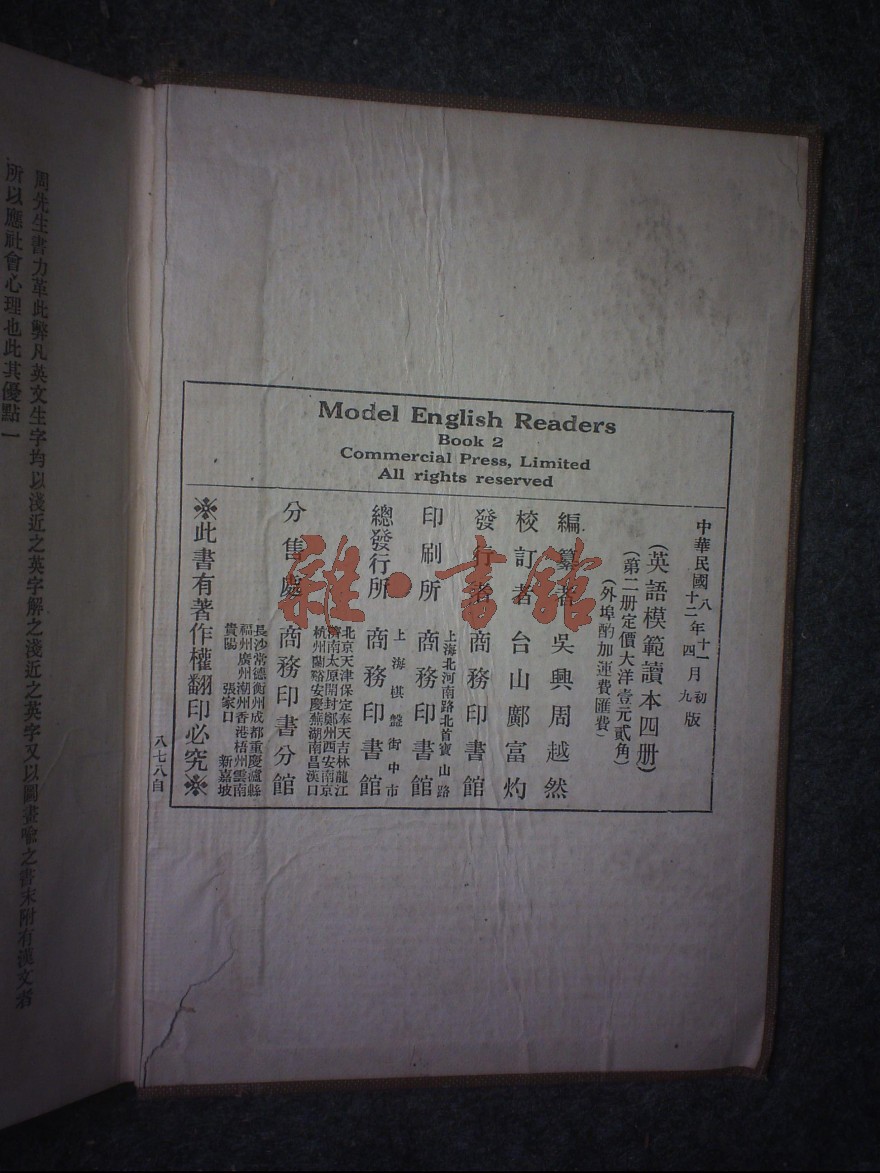 Model English Readers
Book 2
Commercial Press, Limited
All rights reserved
中華民國八年十一月初版
十二年四月九版
(英語模範讀本四册)
(第二册定價大洋壹元貳角)
(外埠酌加運費匯費)
編纂者 吳興周越然
校訂者 台山鄺富灼
發行者 商務印書館
上海北河南路北首寶山路
印刷所 商務印書館
上海棋盤街中市
總發行所 商務印書館
北京天津保定奉天吉林龍江
濟南太原開封鄭州西安南京
杭州蘭谿安慶蕪湖南昌漢口
分售處 商務印書分館
長沙常德衡州成都重慶瀘縣
福州廣州潮州香港梧州雲南
貴陽 張家口 新嘉坡
※此書有著作權翻印必究※
八七八自
雜·書館
周先生書力革此弊凡英文生字均以淺近之英字解之淺近之英字又以圖畫喩之書末附有漢文者
所以應社會心理也此其優點一